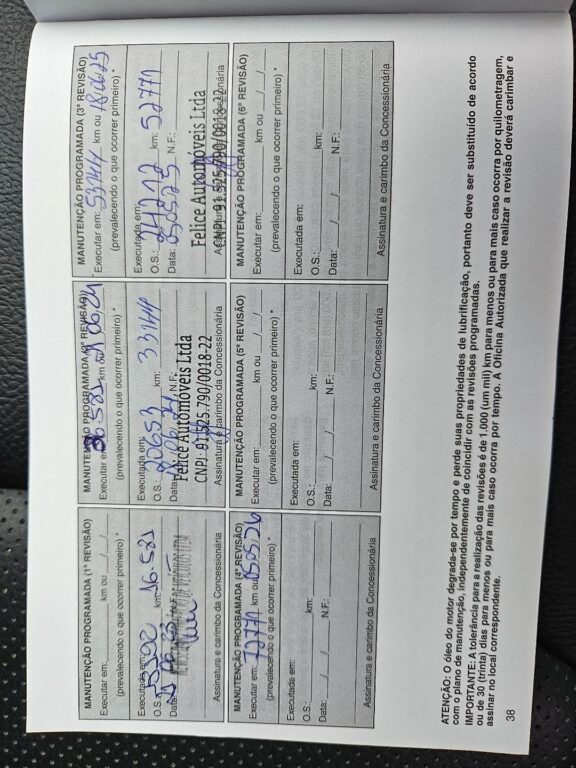 MANUTENÇÃO PROGRAMADA (1ª REVISÃO)
Executar em: km ou / /
(prevalecendo o que ocorrer primeiro) *
Executada em:
O.S.: km: 16.521
Data: N.F.:
Assinatura e carimbo da Concessionária
MANUTENÇÃO PROGRAMADA (2ª REVISÃO)
Executar em: 36.521 km ou 21 06 24
(prevalecendo o que ocorrer primeiro) *
Executada em:
O.S.: 20653 km: 33144
Data: N.F.:
Felice Automóveis Ltda
CNPJ: 91.525.790/0018-22
Assinatura e carimbo da Concessionária
MANUTENÇÃO PROGRAMADA (3ª REVISÃO)
Executar em: 53144 km ou 18 06 25
(prevalecendo o que ocorrer primeiro) *
Executada em:
O.S.: 24212 km: 52771
Data: 05 05 25 N.F.:
Felice Automóveis Ltda
CNPJ: 91.525.790/0018-22
Assinatura e carimbo da Concessionária
MANUTENÇÃO PROGRAMADA (4ª REVISÃO)
Executar em: 72771 km ou 05 05 26
(prevalecendo o que ocorrer primeiro) *
Executada em:
O.S.: km:
Data: / / N.F.:
Assinatura e carimbo da Concessionária
MANUTENÇÃO PROGRAMADA (5ª REVISÃO)
Executar em: km ou / /
(prevalecendo o que ocorrer primeiro) *
Executada em:
O.S.: km:
Data: / / N.F.:
Assinatura e carimbo da Concessionária
MANUTENÇÃO PROGRAMADA (6ª REVISÃO)
Executar em: km ou / /
(prevalecendo o que ocorrer primeiro) *
Executada em:
O.S.: km:
Data: / / N.F.:
Assinatura e carimbo da Concessionária
ATENÇÃO: O óleo do motor degrada-se por tempo e perde suas propriedades de lubrificação, portanto deve ser substituído de acordo
com o plano de manutenção, independentemente de coincidir com as revisões programadas.
IMPORTANTE: A tolerância para a realização das revisões é de 1.000 (um mil) km para menos ou para mais caso ocorra por quilometragem,
ou de 30 (trinta) dias para menos ou para mais caso ocorra por tempo. A Oficina Autorizada que realizar a revisão deverá carimbar e
assinar no local correspondente.
38